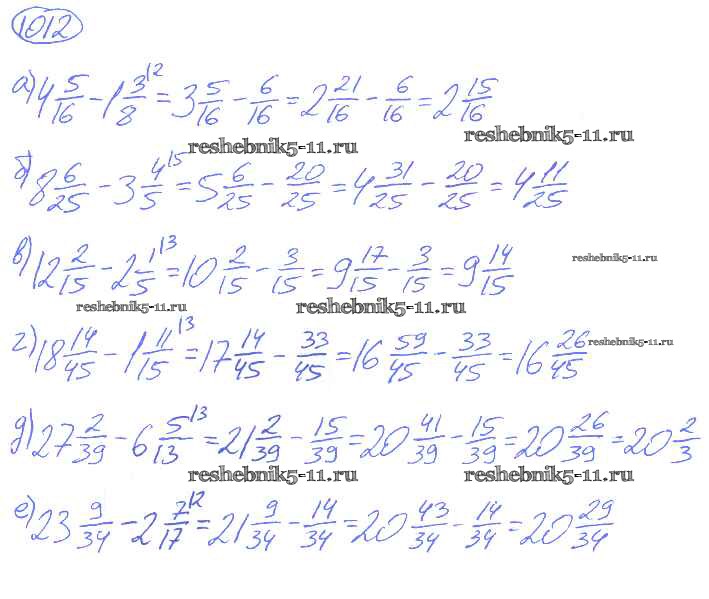 1012
а) 4 5/16 - 1 3/8 |2 = 3 5/16 - 6/16 = 2 21/16 - 6/16 = 2 15/16
reshebnik5-11.ru
reshebnik5-11.ru
б) 8 6/25 - 3 4/5 |5 = 5 6/25 - 20/25 = 4 31/25 - 20/25 = 4 11/25
в) 12 2/15 - 2 1/5 |3 = 10 2/15 - 3/15 = 9 17/15 - 3/15 = 9 14/15
reshebnik5-11.ru
reshebnik5-11.ru
reshebnik5-11.ru
г) 18 14/45 - 1 11/15 |3 = 17 14/45 - 33/45 = 16 59/45 - 33/45 = 16 26/45
reshebnik5-11.ru
д) 27 2/39 - 6 5/13 |3 = 21 2/39 - 15/39 = 20 41/39 - 15/39 = 20 26/39 = 20 2/3
reshebnik5-11.ru
reshebnik5-11.ru
е) 23 9/34 - 2 7/17 |2 = 21 9/34 - 14/34 = 20 43/34 - 14/34 = 20 29/34